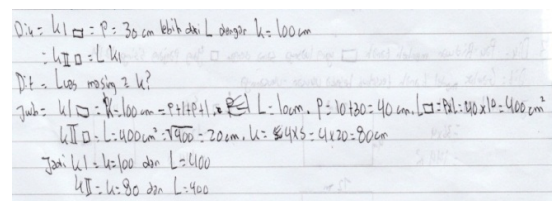 Dik = k I ▭ = P = 30 cm lebih dari L dengan k = 100 cm
= k II □ = L k1
Dit = Luas masing 2 k?
Jwb = k I ▭ = k = 100 cm = P+l+P+l. L = 10 cm. P = 10+30 = 40 cm. L▭ = PxL = 40 x 10 = 400 cm²
k II □ = L = 400 cm² = √400 = 20 cm. k = 4xS = 4x20 = 80 cm
Jadi k I = k = 100 dan L = 400
k II = k = 80 dan L = 400